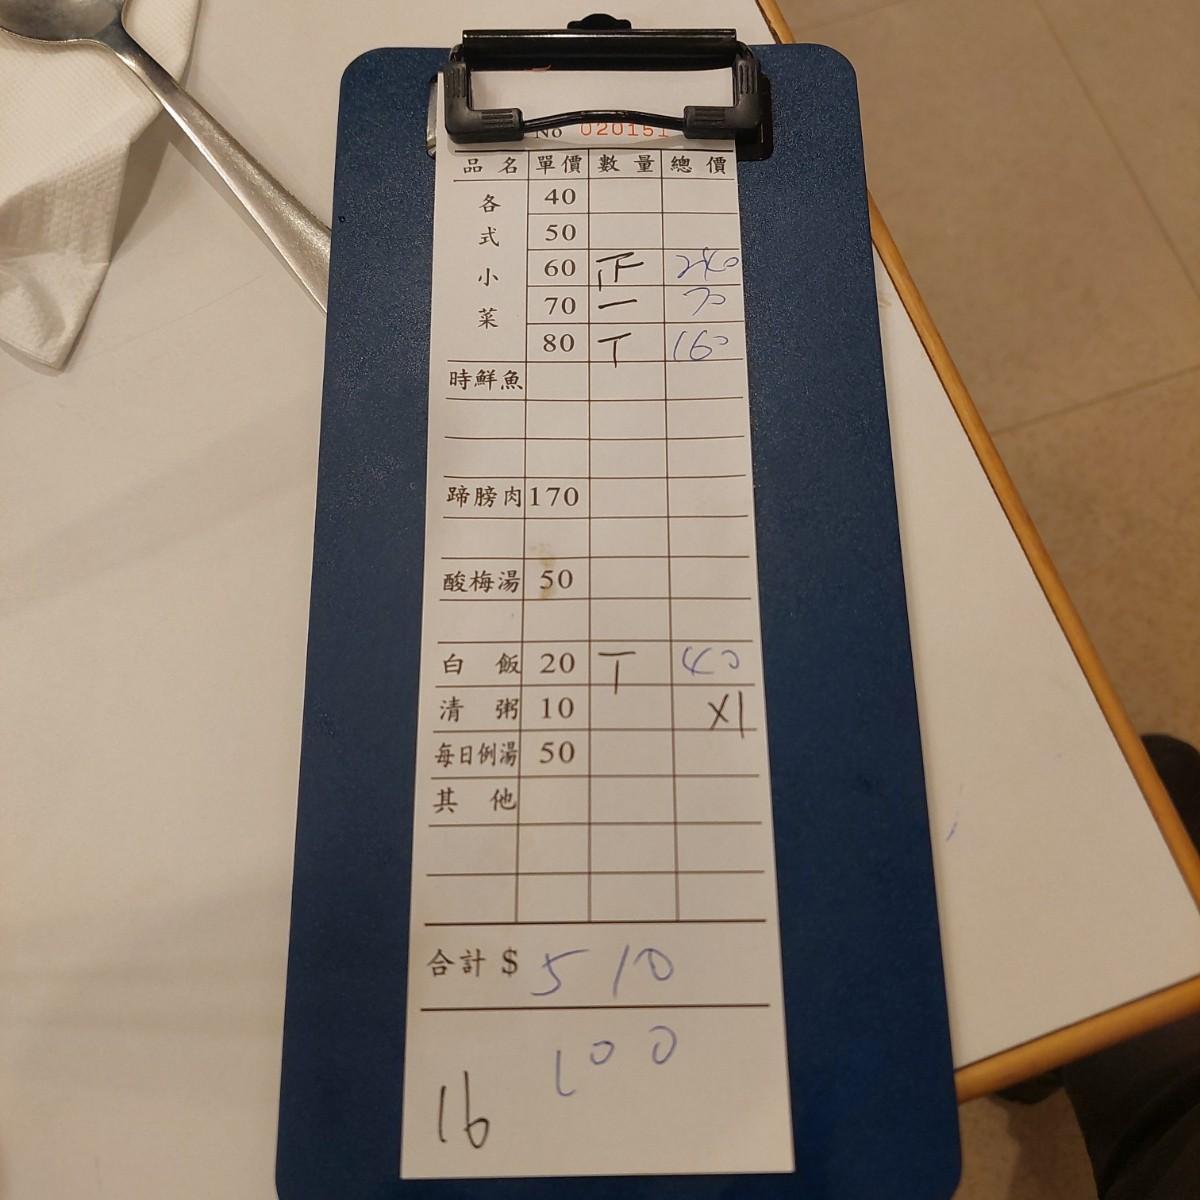 No 020151
品名 單價 數量 總價
各式小菜 40
50
60 正 240
70 一 70
80 丅 160
時鮮魚
蹄膀肉 170
酸梅湯 50
白飯 20 丅 40
清粥 10 X1
每日例湯 50
其他
合計 $ 510
100
16